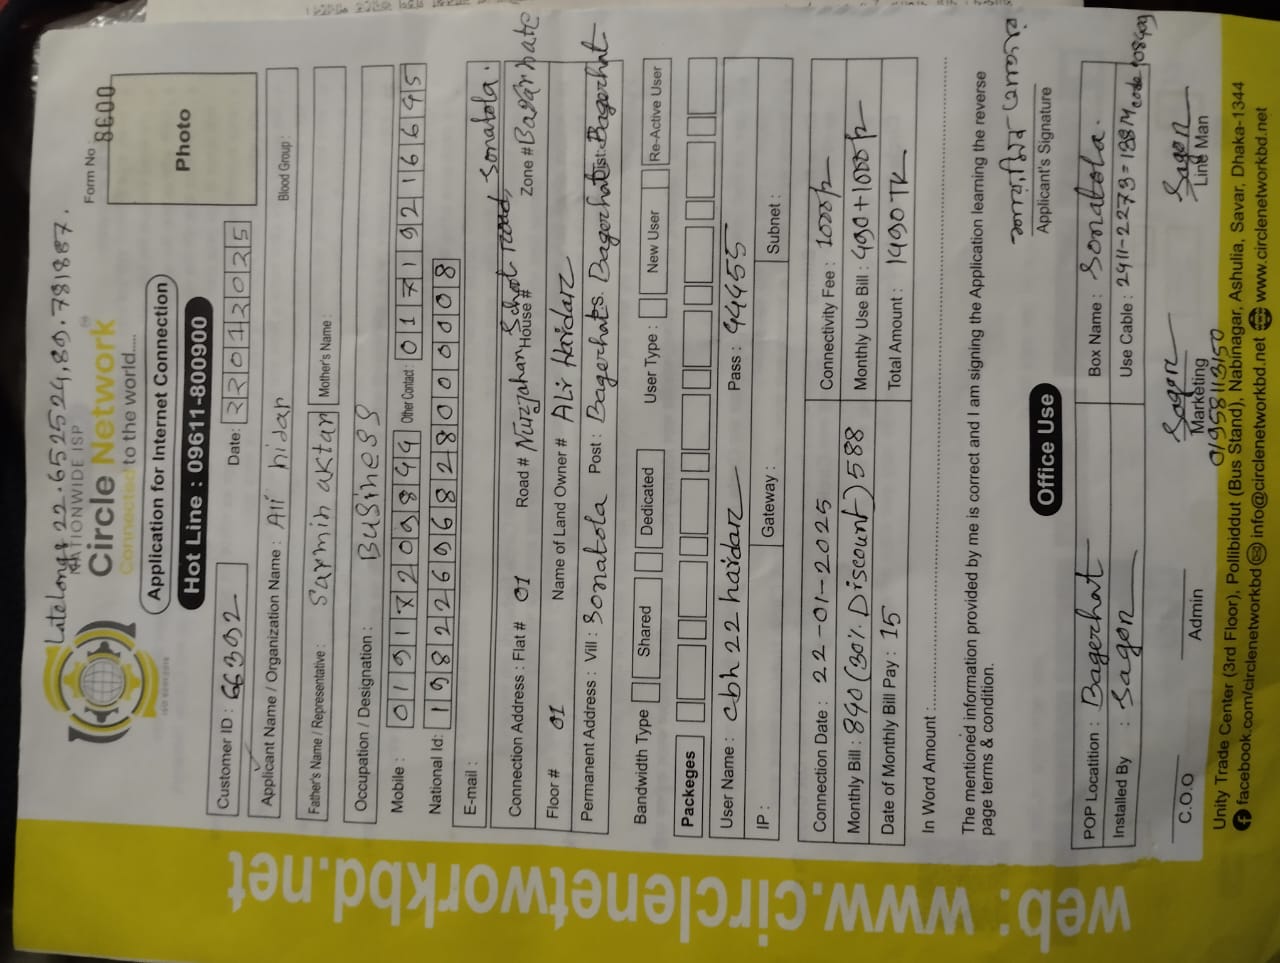 Latelong: 22.652524,89.781887.
NATIONWIDE ISP
Circle Network
Connected to the world.....
Form No
Photo
Application for Internet Connection
Hot Line : 09611-800900
Customer ID : 66392
Date: 22012025
Applicant Name / Organization Name : Ali hidar
Blood Group:
Father's Name / Representative : Sarmin aktar
Mother's Name :
Occupation / Designation : Business
Mobile : 01917209844
Other Contact : 01719216645
National Id: 19822696828000008
E-mail :
Connection Address : Flat # 01 Road # Nurjahan School road, Sonatola.
House #
Floor # 01 Name of Land Owner # Ali Haidar Zone # Bagarhate
Permanent Address : Vill : Sonatola Post : Bagerhat P.S. Bagerhat Dist: Bagerhat
Bandwidth Type Shared Dedicated User Type : New User Re-Active User
Packeges
User Name : cbh22haidar Pass : 44455
IP : Gateway : Subnet :
Connection Date : 22-01-2025 Connectivity Fee : 1000/-
Monthly Bill : 840 (30% Discount) 588 Monthly Use Bill : 490+1000/-
Date of Monthly Bill Pay : 15 Total Amount : 1490 TK
In Word Amount :
The mentioned information provided by me is correct and I am signing the Application learning the reverse
page terms & condition.
Applicant's Signature
Office Use
POP Locatition : Bagerhat Box Name : Sonatola.
Installed By : Sagor Use Cable : 2411-2273=138M code
Sagor Sagor
C.O.O Admin Marketing Line Man
01958113150
Unity Trade Center (3rd Floor), Pollibiddut (Bus Stand), Nabinagar, Ashulia, Savar, Dhaka-1344
facebook.com/circlenetworkbd info@circlenetworkbd.net www.circlenetworkbd.net
web: www.circlenetworkbd.net